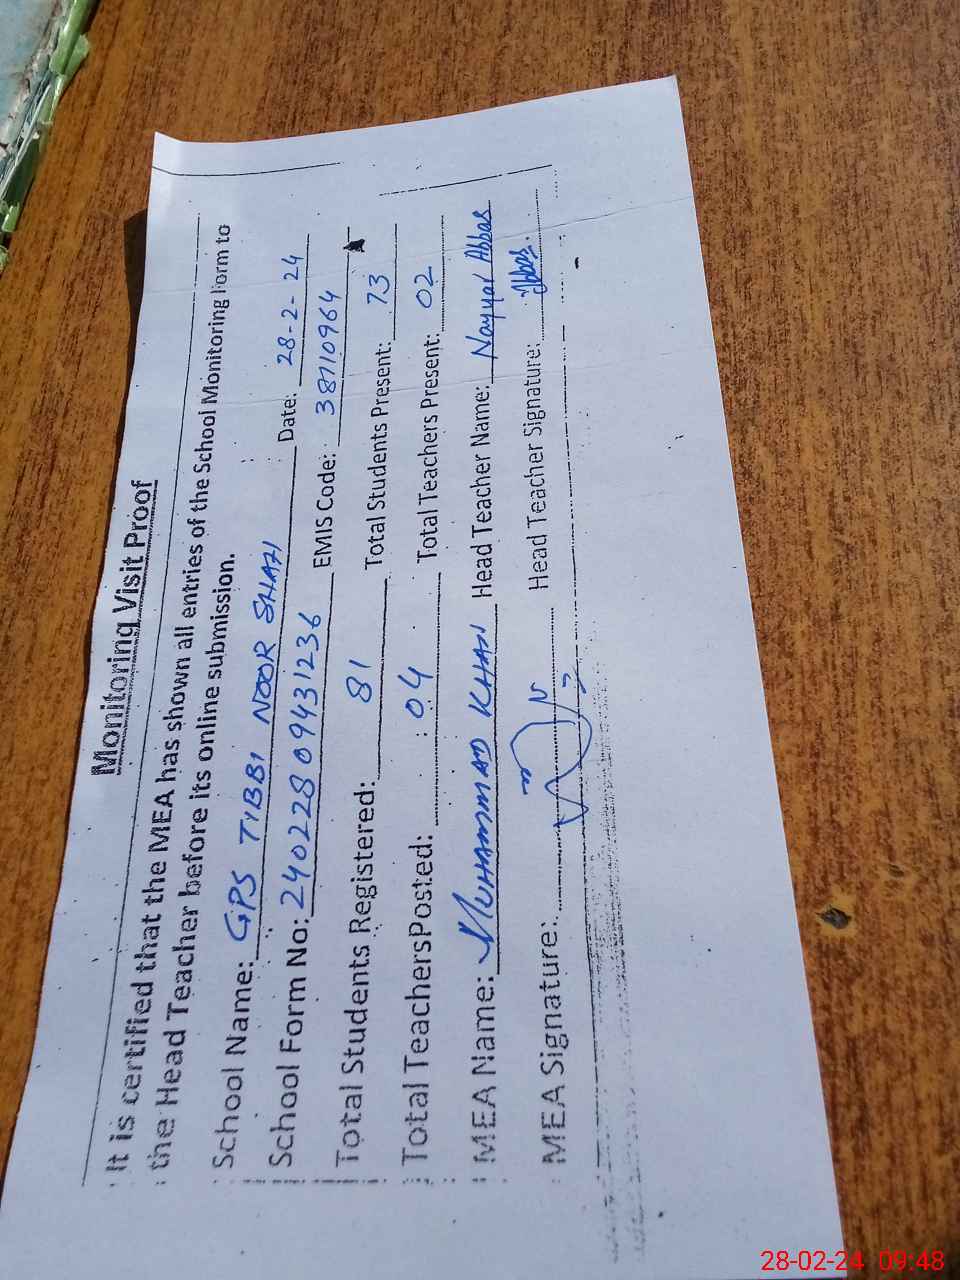 Monitoring Visit Proof
It is certified that the MEA has shown all entries of the School Monitoring Form to
the Head Teacher before its online submission.
School Name: GPS TIBBI NOOR SHAH Date: 28-2-24
School Form No: 24022809431236 EMIS Code: 38110964
Total Students Registered: 81 Total Students Present: 73
Total TeachersPosted: 04 Total Teachers Present: 02
MEA Name: MUHAMMAD KHAN Head Teacher Name: Nayyar Abbas
MEA Signature: Head Teacher Signature: Abbas.
28-02-24 09:48